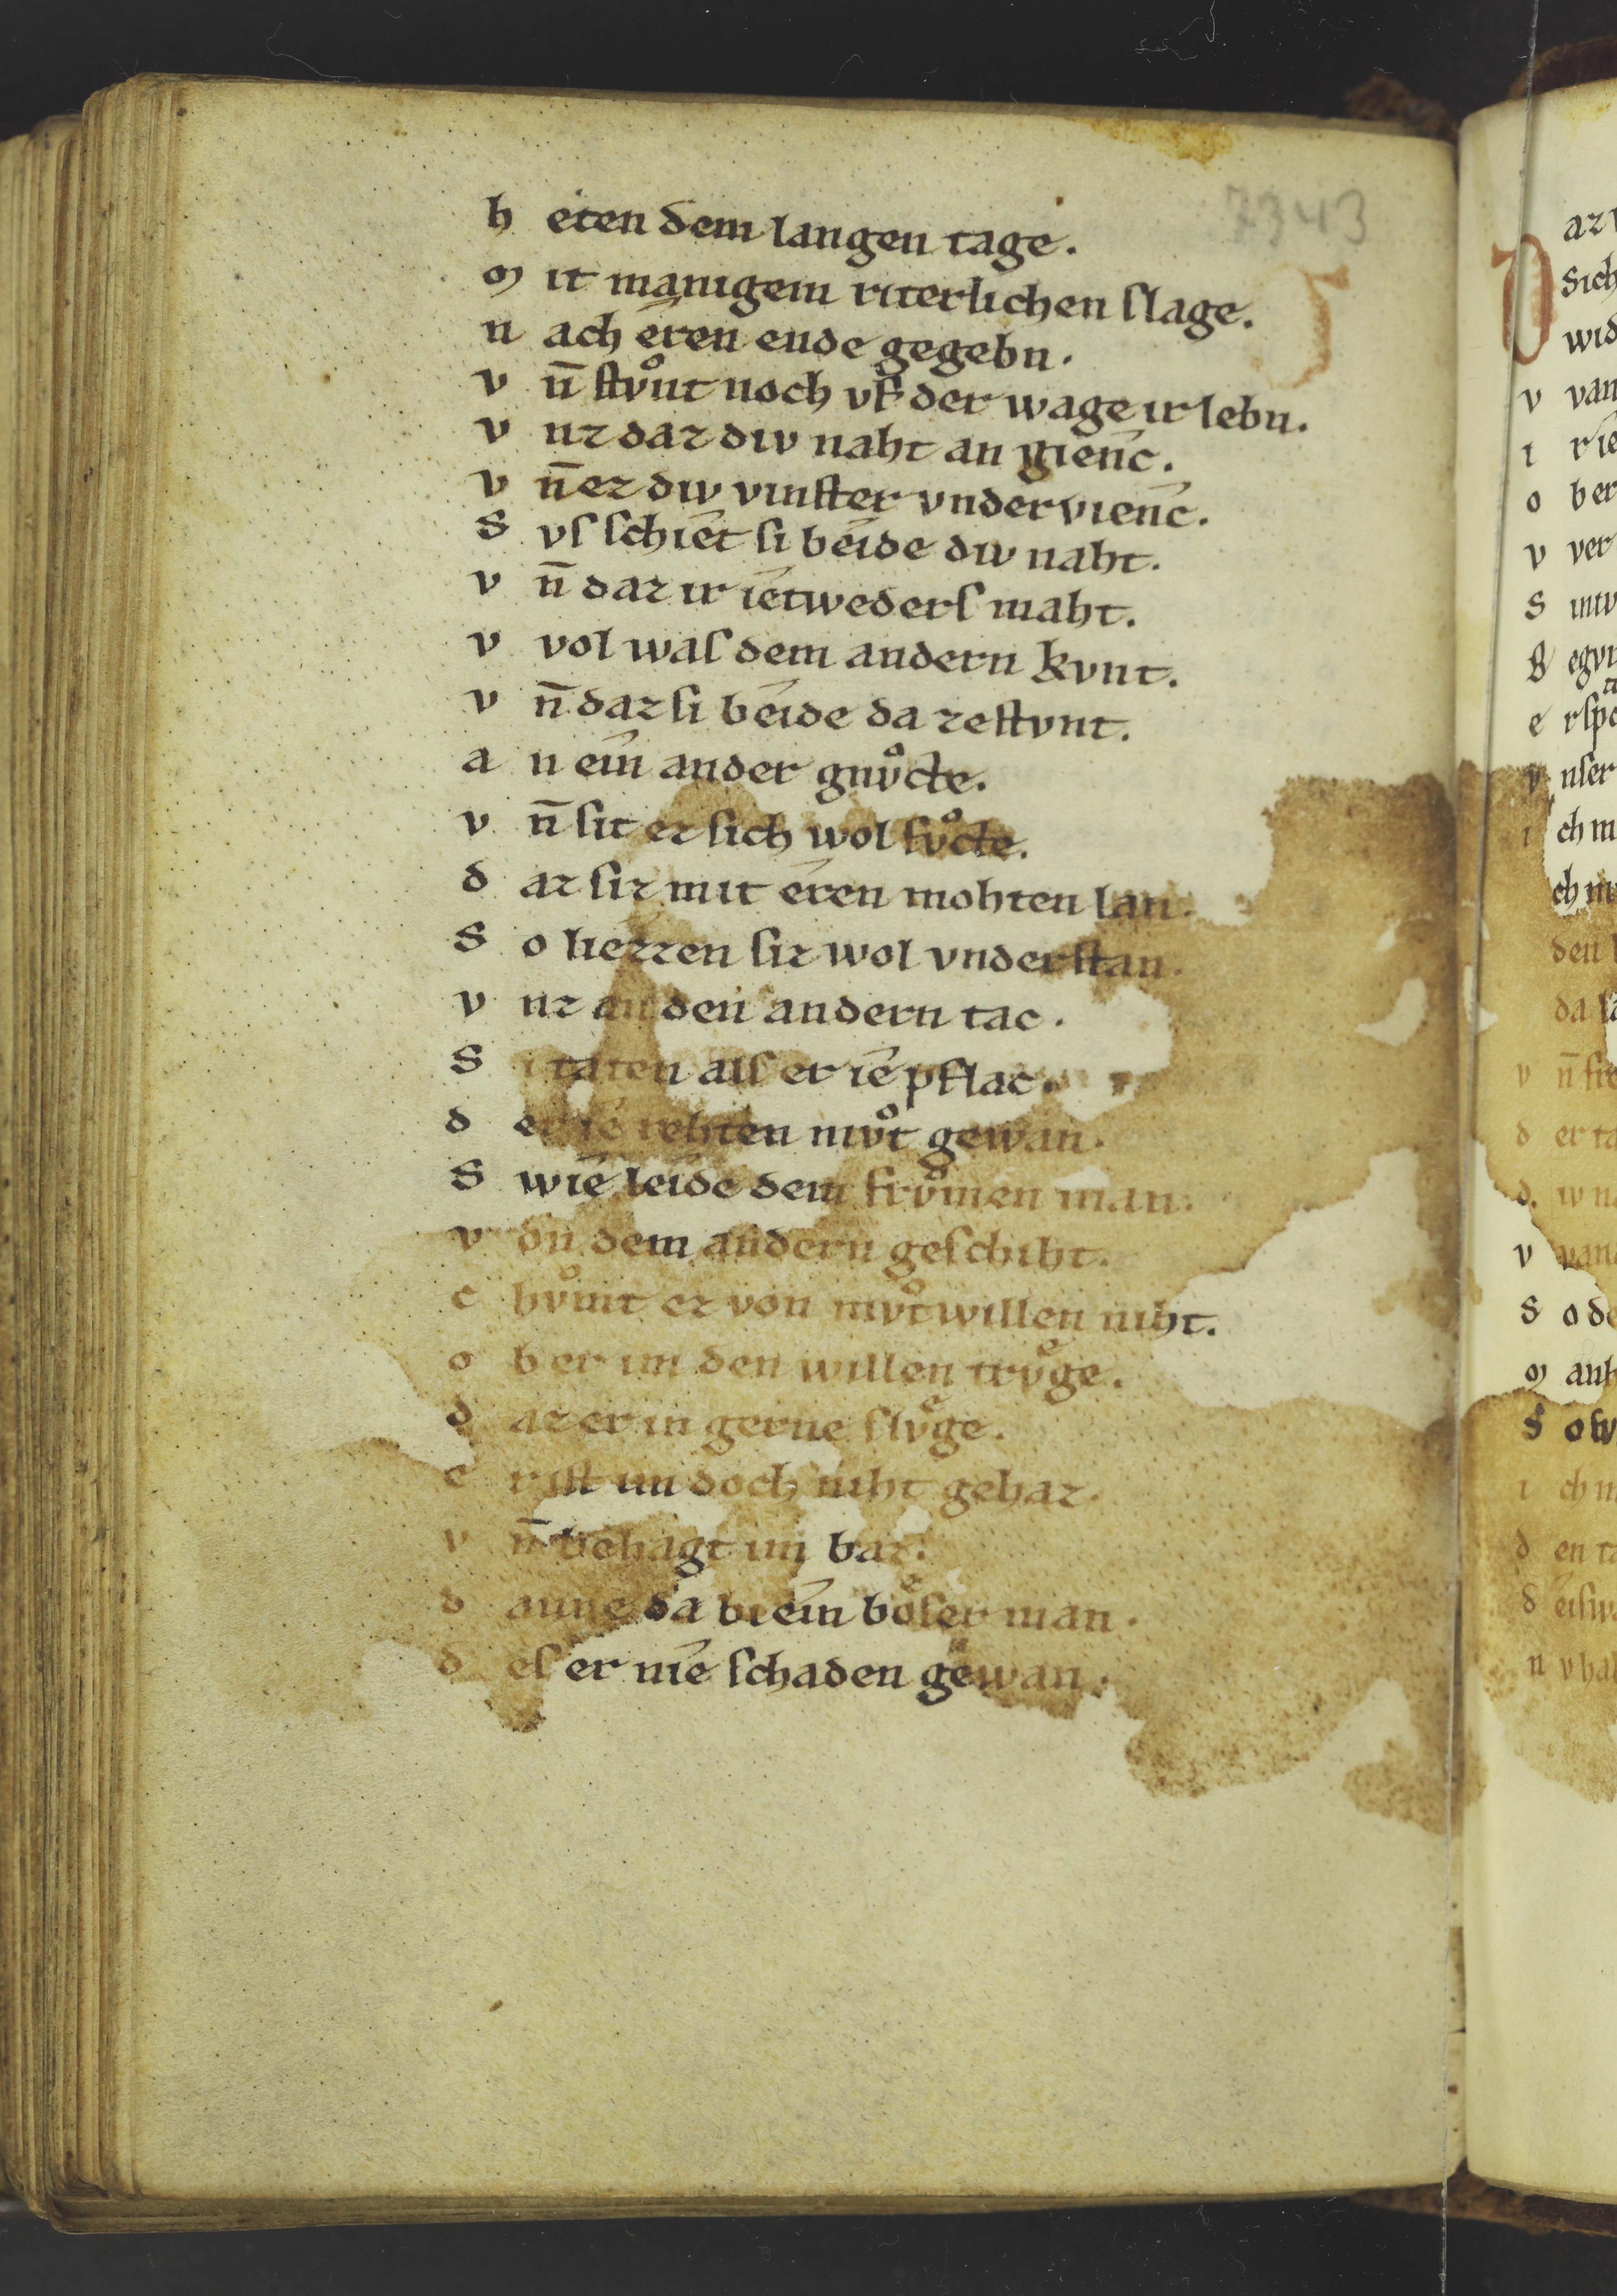 7343
h eten dem langen tage.
m it manigem riterlichen ſlage.
n ach eren ende gegebn.
v n̄ ſtvͦnt noch vf der wage ir lebn.
v nz daz div naht an gienc.
v n̄ ez div vinſter vnder vienc.
S vſ ſchiet ſi beide div naht.
v n̄ daz ir ietweders maht.
v vol waſ dem andern kvnt.
v n̄ daz ſi beide da zeſtvnt.
a n ein ander gnvͦcte.
v n̄ ſit ez ſich wol fvͦcte.
d az ſiz mit eren mohten lan.
S o liezzen ſiz wol vnderſtan.
v nz an den andern tac.
S i taten alſ er ie pflac.
d er ie rehten mvͦt gewan.
S wie leide dem frvͦmen man.
v on dem andern geſchiht.
c hvͦmt ez von mvͦtwillen niht.
o b er im den willen trvͤge.
d az er in gerne ſlvͤge.
e rſt im doch niht gehaz.
v n̄ behagt im baz.
d anne da bi ein boͤſer man.
d eſ er nie ſchaden gewan.
az
Sich
wid
v van
i r ie
o b er
v ver
S intv
B egvn
e rſpr
v nſer
i ch m
ch m
den
da
v n̄ ſi
d er ta
d iv n
v van
S o de
m anh
S o ſw
i ch n
d en t
d eiſw
n v ha